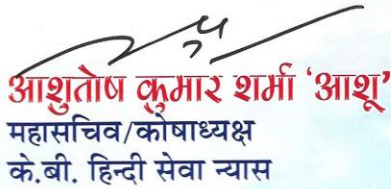 आशुतोष कुमार शर्मा 'आशू'
महासचिव/कोषाध्यक्ष
के.बी. हिन्दी सेवा न्यास